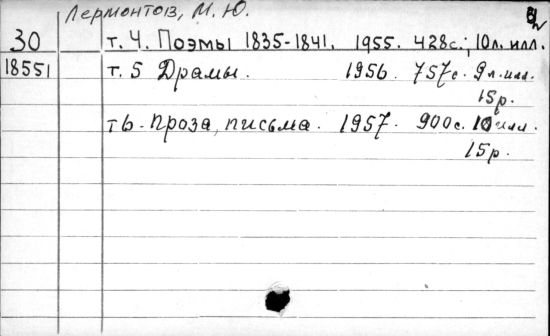 Лермонтов, М. Ю.
30 т. 4. Поэмы 1835-1841. 1955. 428с.; 10л. илл.
18551 т. 5 Драмы. 1956. 757с. 9л. илл.
15р.
т6. Проза, письма. 1957. 900с. 10 илл.
15р.